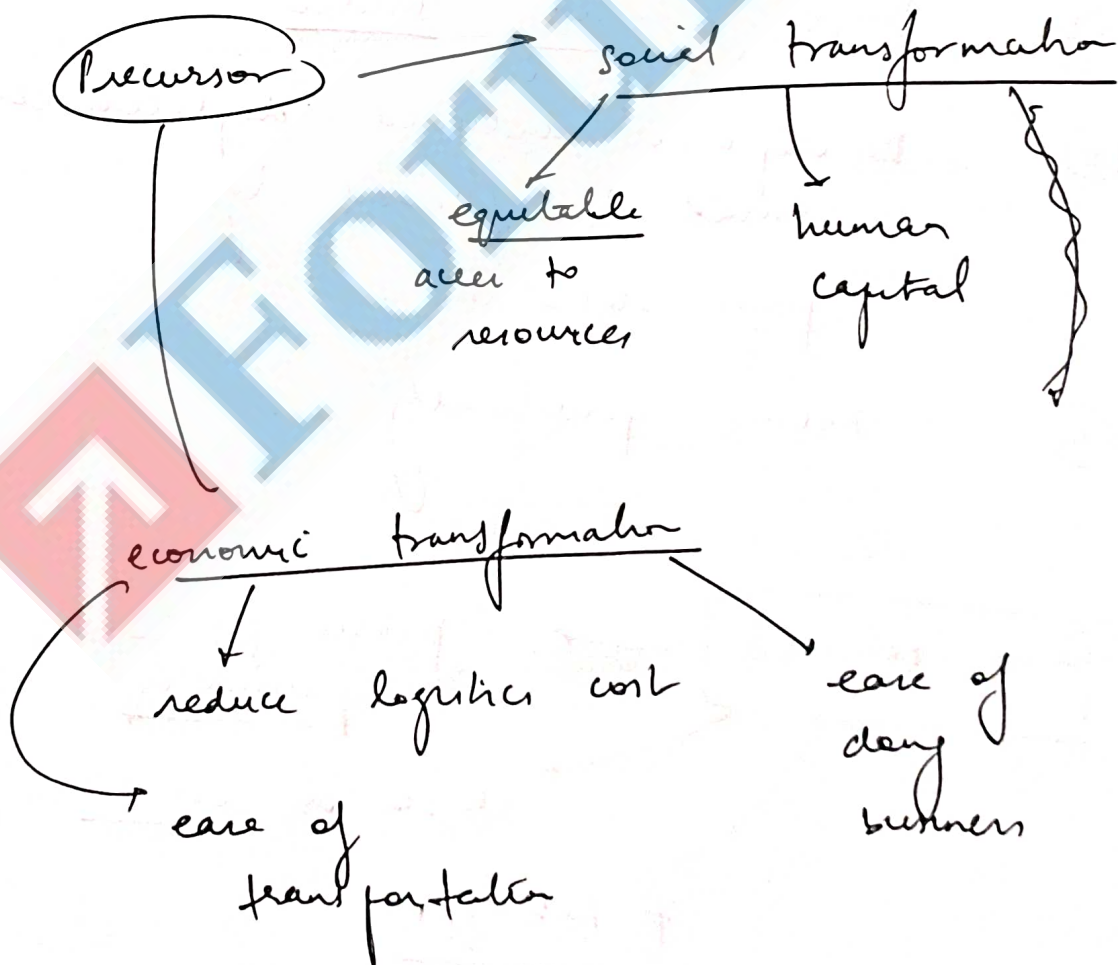 Precursor
social transformation
equitable
access to
resources
human
capital
economic transformation
reduce logistics cost
ease of
doing
business
ease of
transportation
Foru